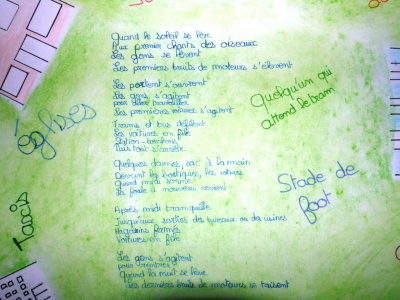 Quand le soleil se lève
Aux premier chants des oiseaux
Les gens se lèvent
Les premiers bruits de moteurs s'élèvent
Les portent s'ouvrent
Les gens s'agitent
pour aller travailler
Les premières voitures s'agitent
Trams et bus défilent
Les voitures en file
Station-bouchons
Puis tout s'arrête
Quelques dames, sac à la main
Devant les boutiques, les vitrines
Quand midi sonne
La foule à nouveau revient
Après midi tranquille
Jusqu'aux sorties des bureaux ou des usines
Magasins fermés
Voitures en file
Les gens s'agitent
pour rentrer
Quand la nuit se lève
Les derniers bruits de moteurs se taisent
églises
Taxis
Quelqu'un qui
attend le tram
Stade de
foot